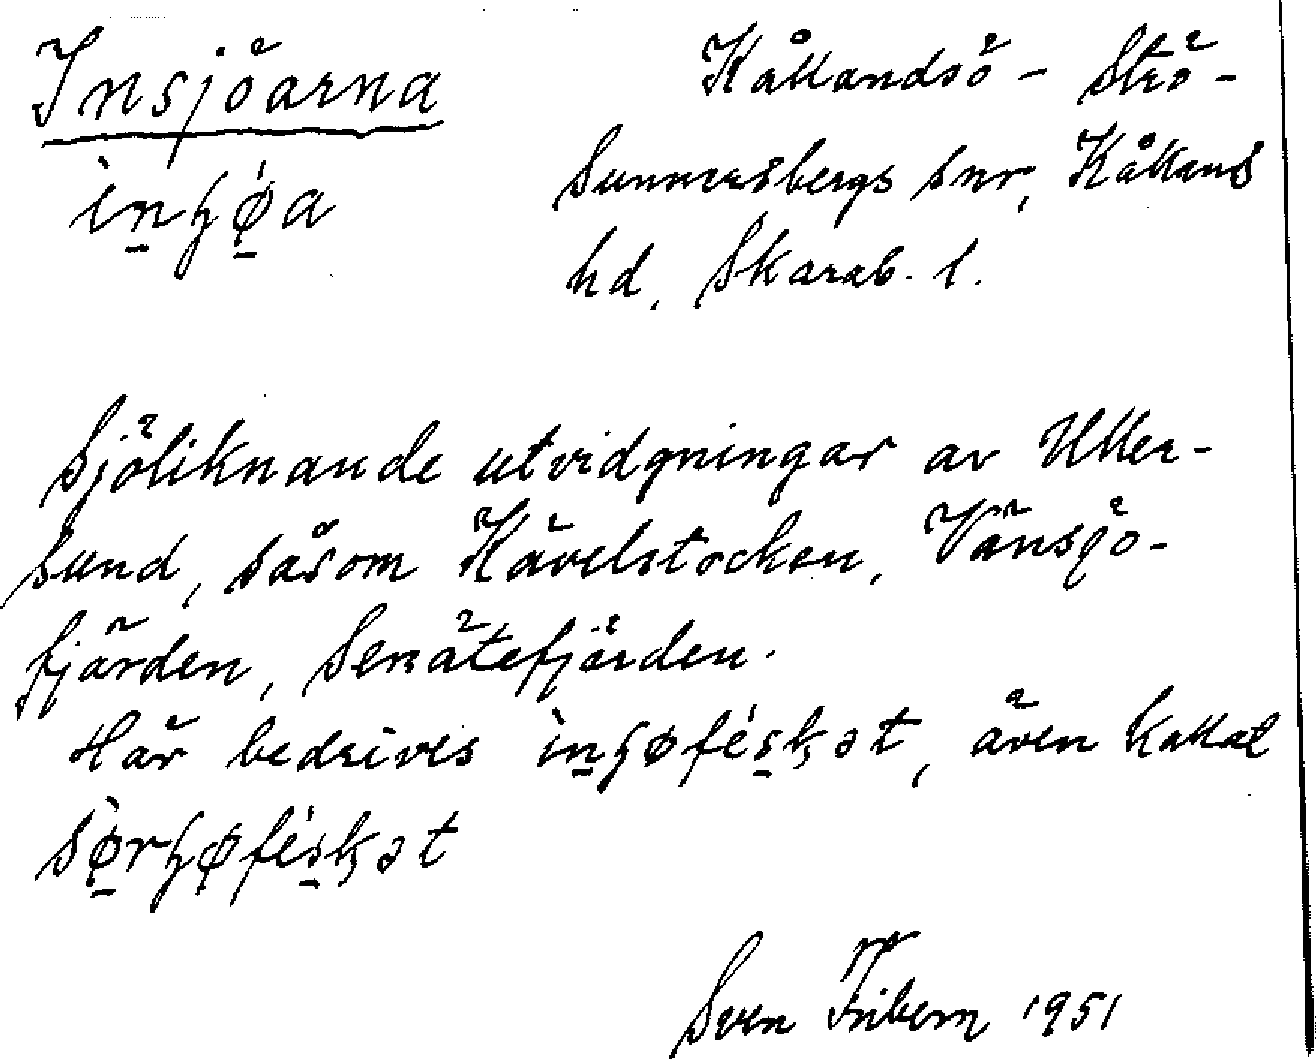 Insjöarna
Kållandsö - Strö-
Sunnersbergs snr, Kållands
hd, Skarab. l.
sjöliknande utvidgningar av Uller-
sund, såsom Kävelstocken, Vänsjö-
fjärden, Senätefjärden.
Här bedrives ìnɧøféskət, även kallat
sørɧøféskət
Sven Fribern 1951